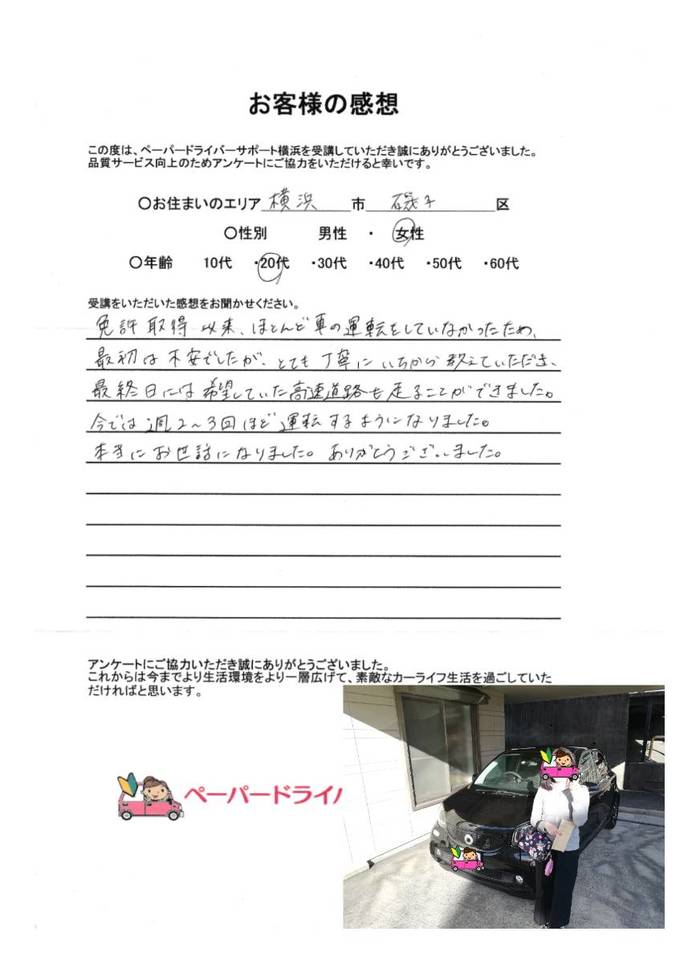 お客様の感想
この度は、ペーパードライバーサポート横浜を受講していただき誠にありがとうございました。
品質サービス向上のためアンケートにご協力をいただけると幸いです。
〇お住まいのエリア 横浜 市 磯子 区
〇性別 男性 ・ 女性
〇年齢 10代 ・20代 ・30代 ・40代 ・50代 ・60代
受講をいただいた感想をお聞かせください。
免許取得以来、ほとんど車の運転をしていなかったため、
最初は不安でしたが、とても丁寧にいちから教えていただき、
最終日には希望していた高速道路も走ることができました。
今では週2~3回ほど運転するようになりました。
本当にお世話になりました。ありがとうございました。
アンケートにご協力いただき誠にありがとうございました。
これからは今までより生活環境をより一層広げて、素敵なカーライフ生活を過ごしていた
だければと思います。
ペーパードライバ